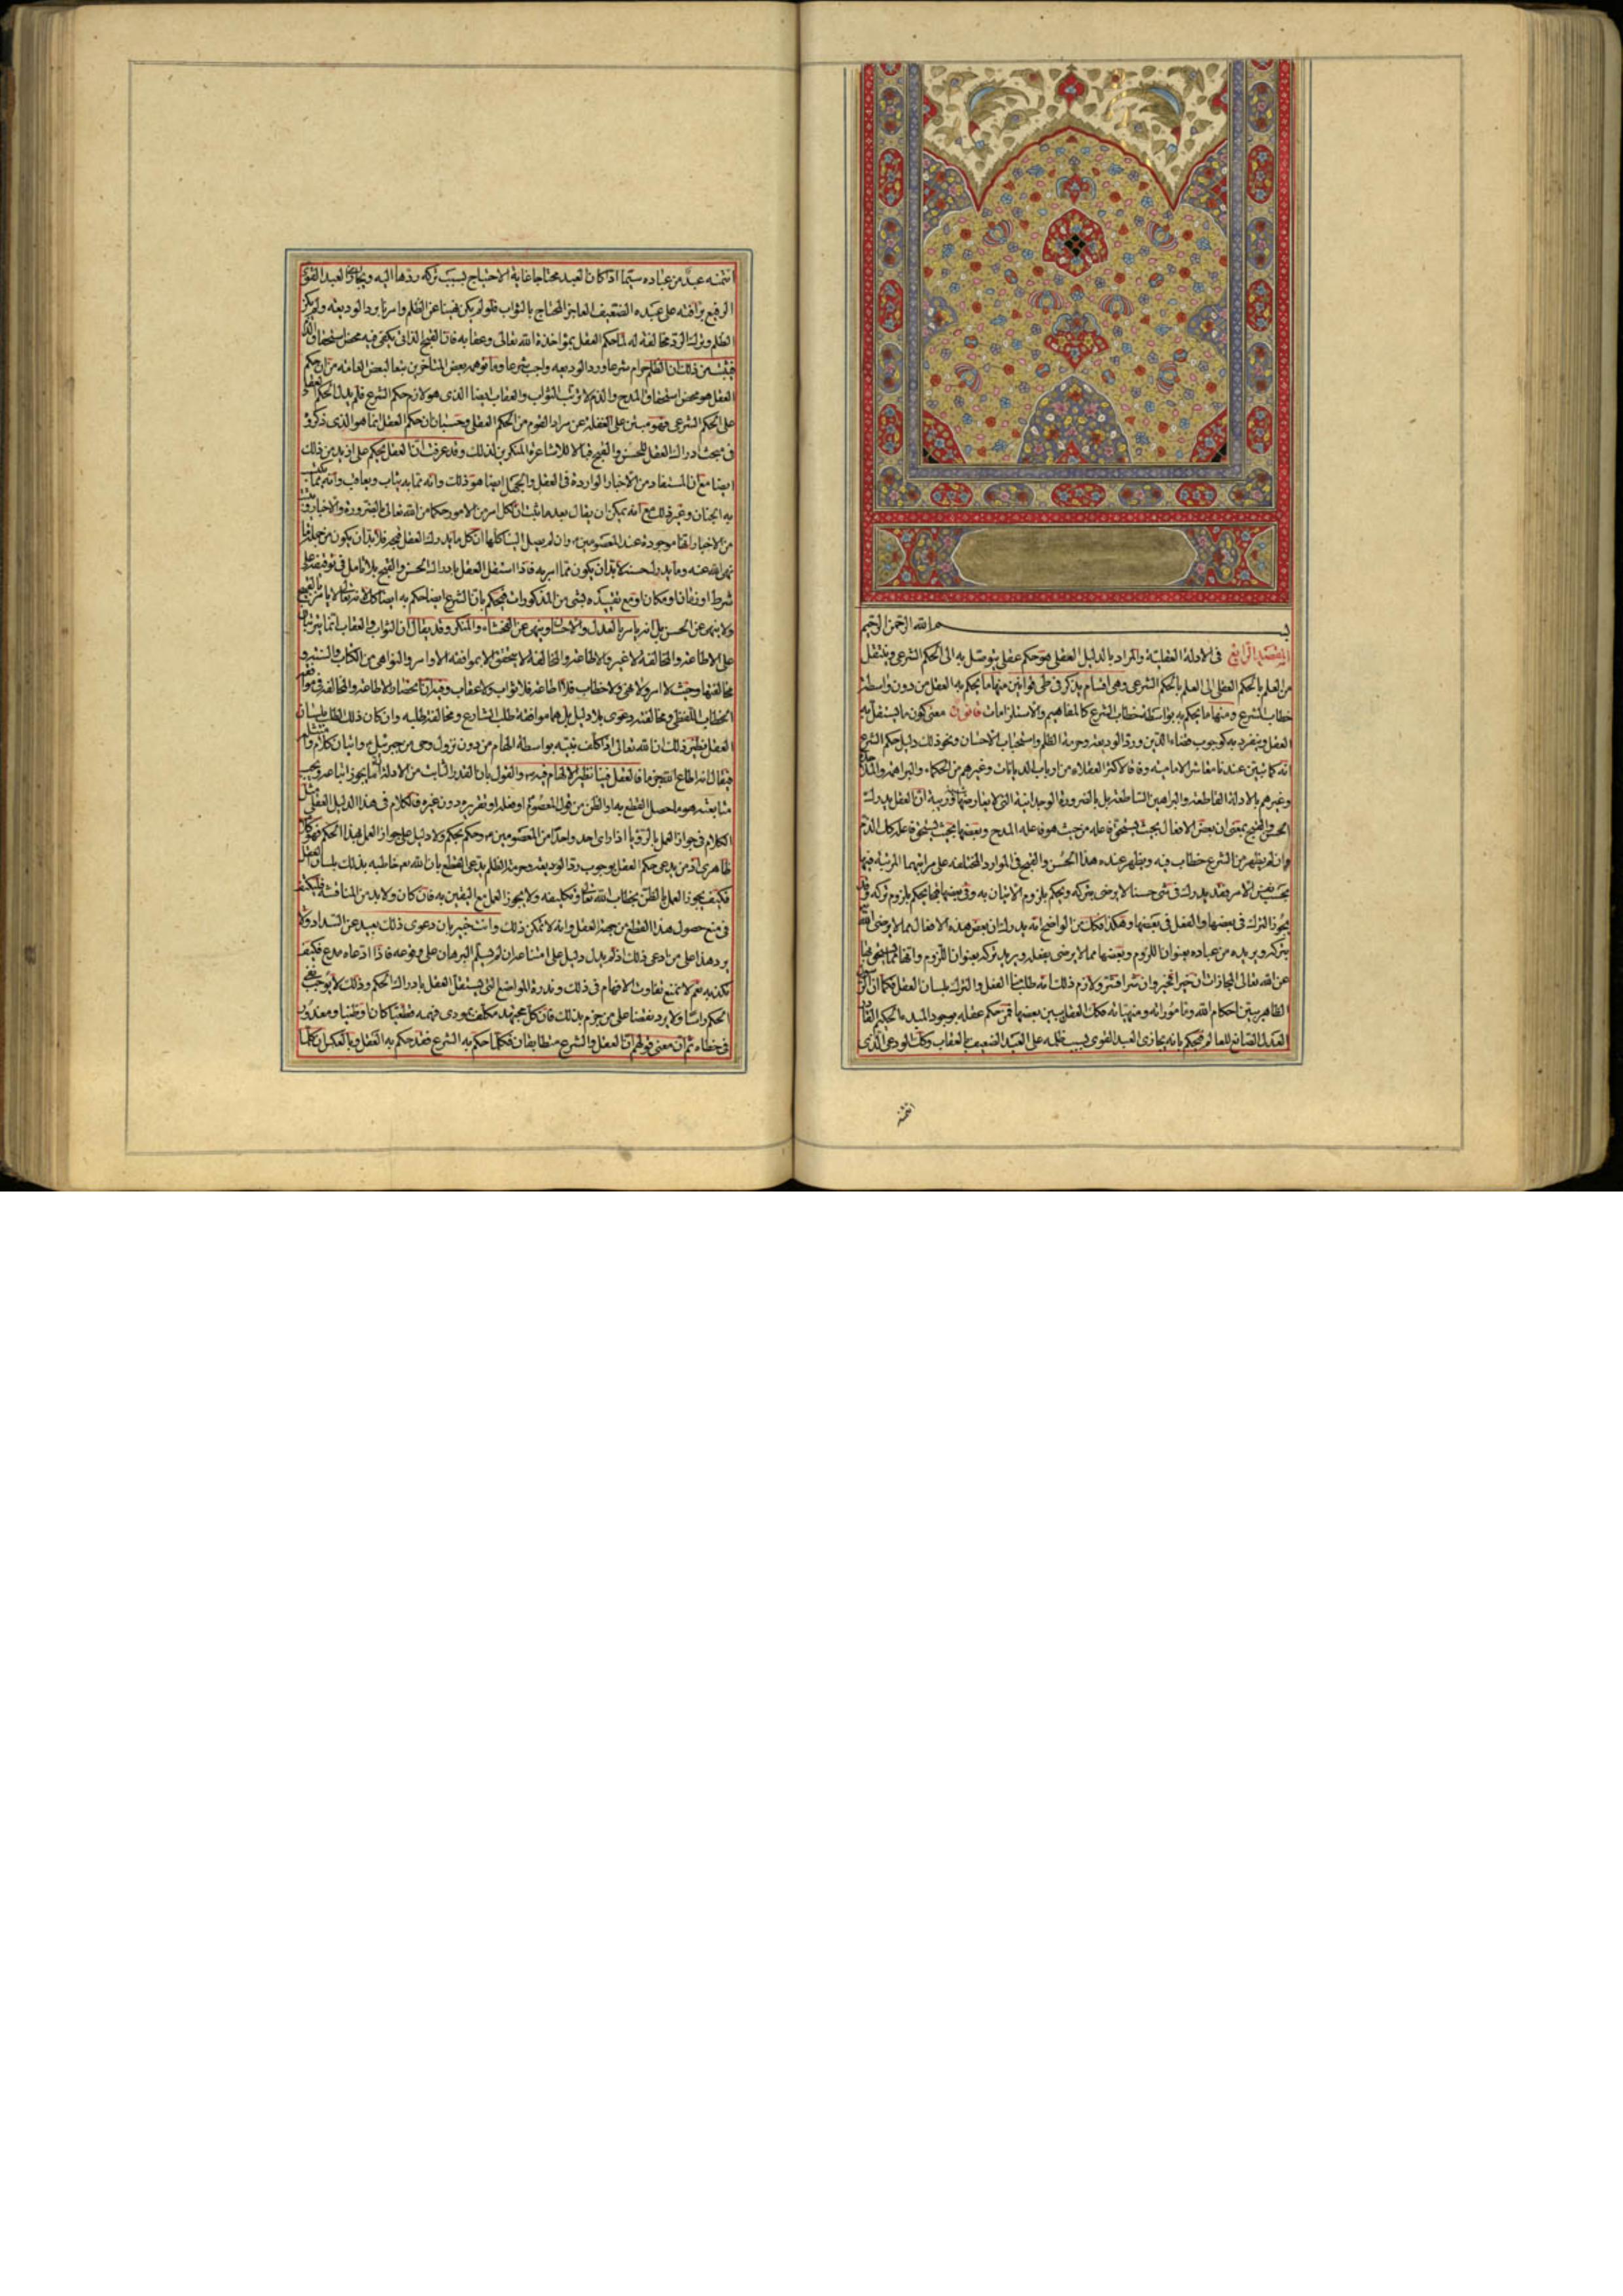 بسم الله الرحمن الرحيم
المقصد الرابع فى الادلة العقلية والمراد بالدليل العقلى هو حكم عقلى يتوصل به الى الحكم الشرعى وينتقل
من العلم بالحكم العقلى الى العلم بالحكم الشرعى وهى اقسام يذكر فى طى قوانين منها ما يحكم به العقل من دون واسطة
خطاب الشرع ومنها ما يحكم به بواسطة خطاب الشرع كالمفاهيم والاستلزامات قانون معنى كون ما يستقل به
العقل وينفرد به كوجوب قضاء الدين ورد الوديعة وحرمة الظلم واستحباب الاحسان ونحو ذلك دليل حكم الشرع
انه كما تبين عندنا معاشر الامامية وفاقا لاكثر العقلاء من ارباب الديانات وغيرهم من الحكماء والبراهمة والملاحدة
وغيرهم بالادلة القاطعة والبراهين الساطعة بل بالضرورة الوجدانية التى لا يعارضها ريبة ان العقل يدرك
الحسن والقبح بمعنى ان بعض الافعال بحيث يستحق فاعله من حيث هو فاعله المدح وبعضها بحيث يستحق فاعله كك الذم
وان لم يظهر من الشرع خطاب فيه ويظهر عنده هذا الحسن والقبح فى الموارد المختلفة على مراتبهما المرتبة فيها
بحسب نفس الامر فقد يدرك فى شى حسنا لا يرضى بتركه ويحكم بلزوم الاتيان به وفى بعضها قبحا يحكم بلزوم تركه وقد
يجوز الترك فى بعضها والفعل فى بعضها وهكذا فكك من الواضح انه يدرك ان بعض هذه الافعال مما لا يرضى الله
بتركه ويريده من عباده بعنوان اللزوم وبعضها مما لا يرضى بفعله ويريد تركه بعنوان اللزوم وانها مما يستحق بها
عن الله تعالى المجازات ان خيرا فخير وان شرا فشر ولازم ذلك انه طلب منا الفعل والترك بلسان العقل فكما ان الرسول
الظاهر يبين احكام الله ومأموراته ومنهياته فكك العقل يبين بعضها فمن حكم عقله بوجود المبدء الحكيم القادر
العدل الصانع العالم فيحكم بانه يجازى العبد القوى بسبب ظلمه على العبد الضعيف بالعقاب وكك الودعى الذى
ائتمنه
ائتمنه عبد من عباده سيما اذا كان العبد محتاجا غاية الاحتياج بسبب ترك ردها اليه ويجازى العبد القوى
الرفيع برأفته على عبده الضعيف العاجز المحتاج بالثواب فلو لم يكن نهينا عن الظلم وامرنا برد الوديعة ولم يكن
الظلم وترك الرد مخالفة له لما حكم العقل بمؤاخذة الله تعالى وعقابه فان القبح الذاتى يكفى فيه محض استحقاق الذم
فيثبت من ذلك ان الظلم حرام شرعا ورد الوديعة واجب شرعا وما توهمه بعض المتاخرين تبعا لبعض العامة من ان حكم
العقل هو محض استحقاق المدح والذم لا ترتب الثواب والعقاب ايضا الذى هو لازم حكم الشرع فلم يدل الحكم العقلى
على الحكم الشرعى فهو مبتن على الغفلة عن مراد القوم من الحكم العقلى وحسبان ان حكم العقل انما هو الذى ذكروه
فى مبحث ادراك العقل للحسن والقبح قبالا للاشاعرة المنكرين لذلك وقد عرفت ان العقل يحكم على ازيد من ذلك
ايضا مع ان المستفاد من الاخبار الواردة فى العقل والجهل ايضا هو ذلك وانه مما به يثاب ويعاقب وانه مما يكتسب
به الجنان وغير ذلك مع انه يمكن ان يقال بعد ما ثبت ان لكل امر من الامور حكما من الله تعالى بالضرورة والاخبار وثبت
من الاخبار انها موجودة عند المعصومين وان لم يصل الينا كلها ان كل ما يدرك العقل قبحه فلا بد ان يكون من جملة ما
نهى الله عنه وما يدرك حسنه لا بد ان يكون مما امر به فاذا استقل العقل بادراك الحسن والقبح بلا تامل فى توقيفه على
شرط او زمان او مكان او مع تقييده بشى من المذكورات فيحكم بان الشرع ايضا حكم به ايضا كك لانه تعالى لا يامر بالقبيح
ولا ينهى عن الحسن بل انه يامر بالعدل والاحسان وينهى عن الفحشاء والمنكر وقد يقال ان الثواب والعقاب انما يترتبان
على الاطاعة والمخالفة لا غير والاطاعة والمخالفة لا يتحقق الا بموافقة الاوامر والنواهى من الكتاب والسنة و
مخالفتها وحيث لا امر ولا نهى ولا خطاب فلا اطاعة فلا ثواب ولا عقاب وفيه ان انحصار الاطاعة والمخالفة فى موافقة
الخطاب اللفظى ومخالفته دعوى بلا دليل بل هما موافقة طلب الشارع ومخالفته طلبه وان كان ذلك الطلب بلسان
العقل ونظير ذلك ان الله تعالى اذا كلف نبيه بواسطة الهام من دون نزول وحى من جبرئيل واتيان كلام وامتثله
فيقال انه اطاع الله جزما فالعقل فينا نظير الالهام فيه والقول بان القدر الثابت من الادلة ان ما يجوز اتباعه ويجب
متابعته هو ما حصل القطع به او الظن من قول المعصوم او فعله او تقريره دون غيره فالكلام فى هذا الدليل العقلى مثل
الكلام فى جواز العمل بالرؤيا اذا راى احد واحدا من المعصومين وحكم بحكم ولا دليل على جواز العمل بهذا الحكم فهو كلام
ظاهرى اذ من يدعى حكم العقل بوجوب رد الوديعة وحرمة الظلم يدعى القطع بان الله تعالى خاطبه بذلك بلسان العقل
فكيف يجوز العمل بالظن بخطاب الله تعالى وتكليفه ولا يجوز العمل مع اليقين به فان كان ولا بد من المناقشة فليكتف
فى منع حصول هذا القطع من جهة العقل وانه لا يمكن ذلك وانت خبير بان دعوى ذلك بعيد عن السداد ولا
يرد هذا على من ادعى ذلك اذ لم يدل دليل على امتناعه ان لم يسلم البرهان على وقوعه فاذا ادعاه مدع فكيف
نكذبه نعم لا نمنع تفاوت الافهام فى ذلك وندرة المواضع التى يستقل العقل بادراك الحكم وذلك لا يوجب نفى
الحكم راسا ولا يرد نقضا على من جزم بذلك فان كل مجتهد مكلف بمودى فهمه قطعيا كان او ظنيا ومعذور
فى خطاءه ثم ان معنى قولهم ان العقل والشرع متطابقان فكلما حكم به الشرع فقد حكم به العقل وبالعكس ان كلما